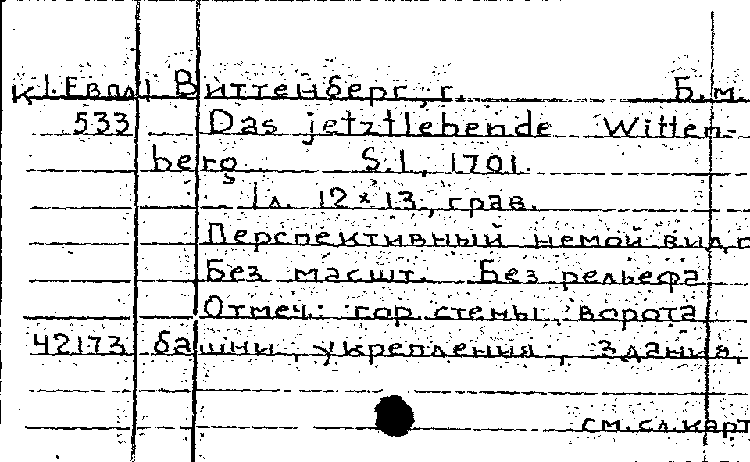 К1.Евпл1 Виттенберг, г. Б.м.
533 Das jetztlebende Witten-
berg S.l., 1701.
1л. 12×13, грав.
Перспективный немой вид г
Без масшт. Без рельефа
Отмеч: гор. стены, ворота
42173 башни, укрепления, здания,
см. сл. карт